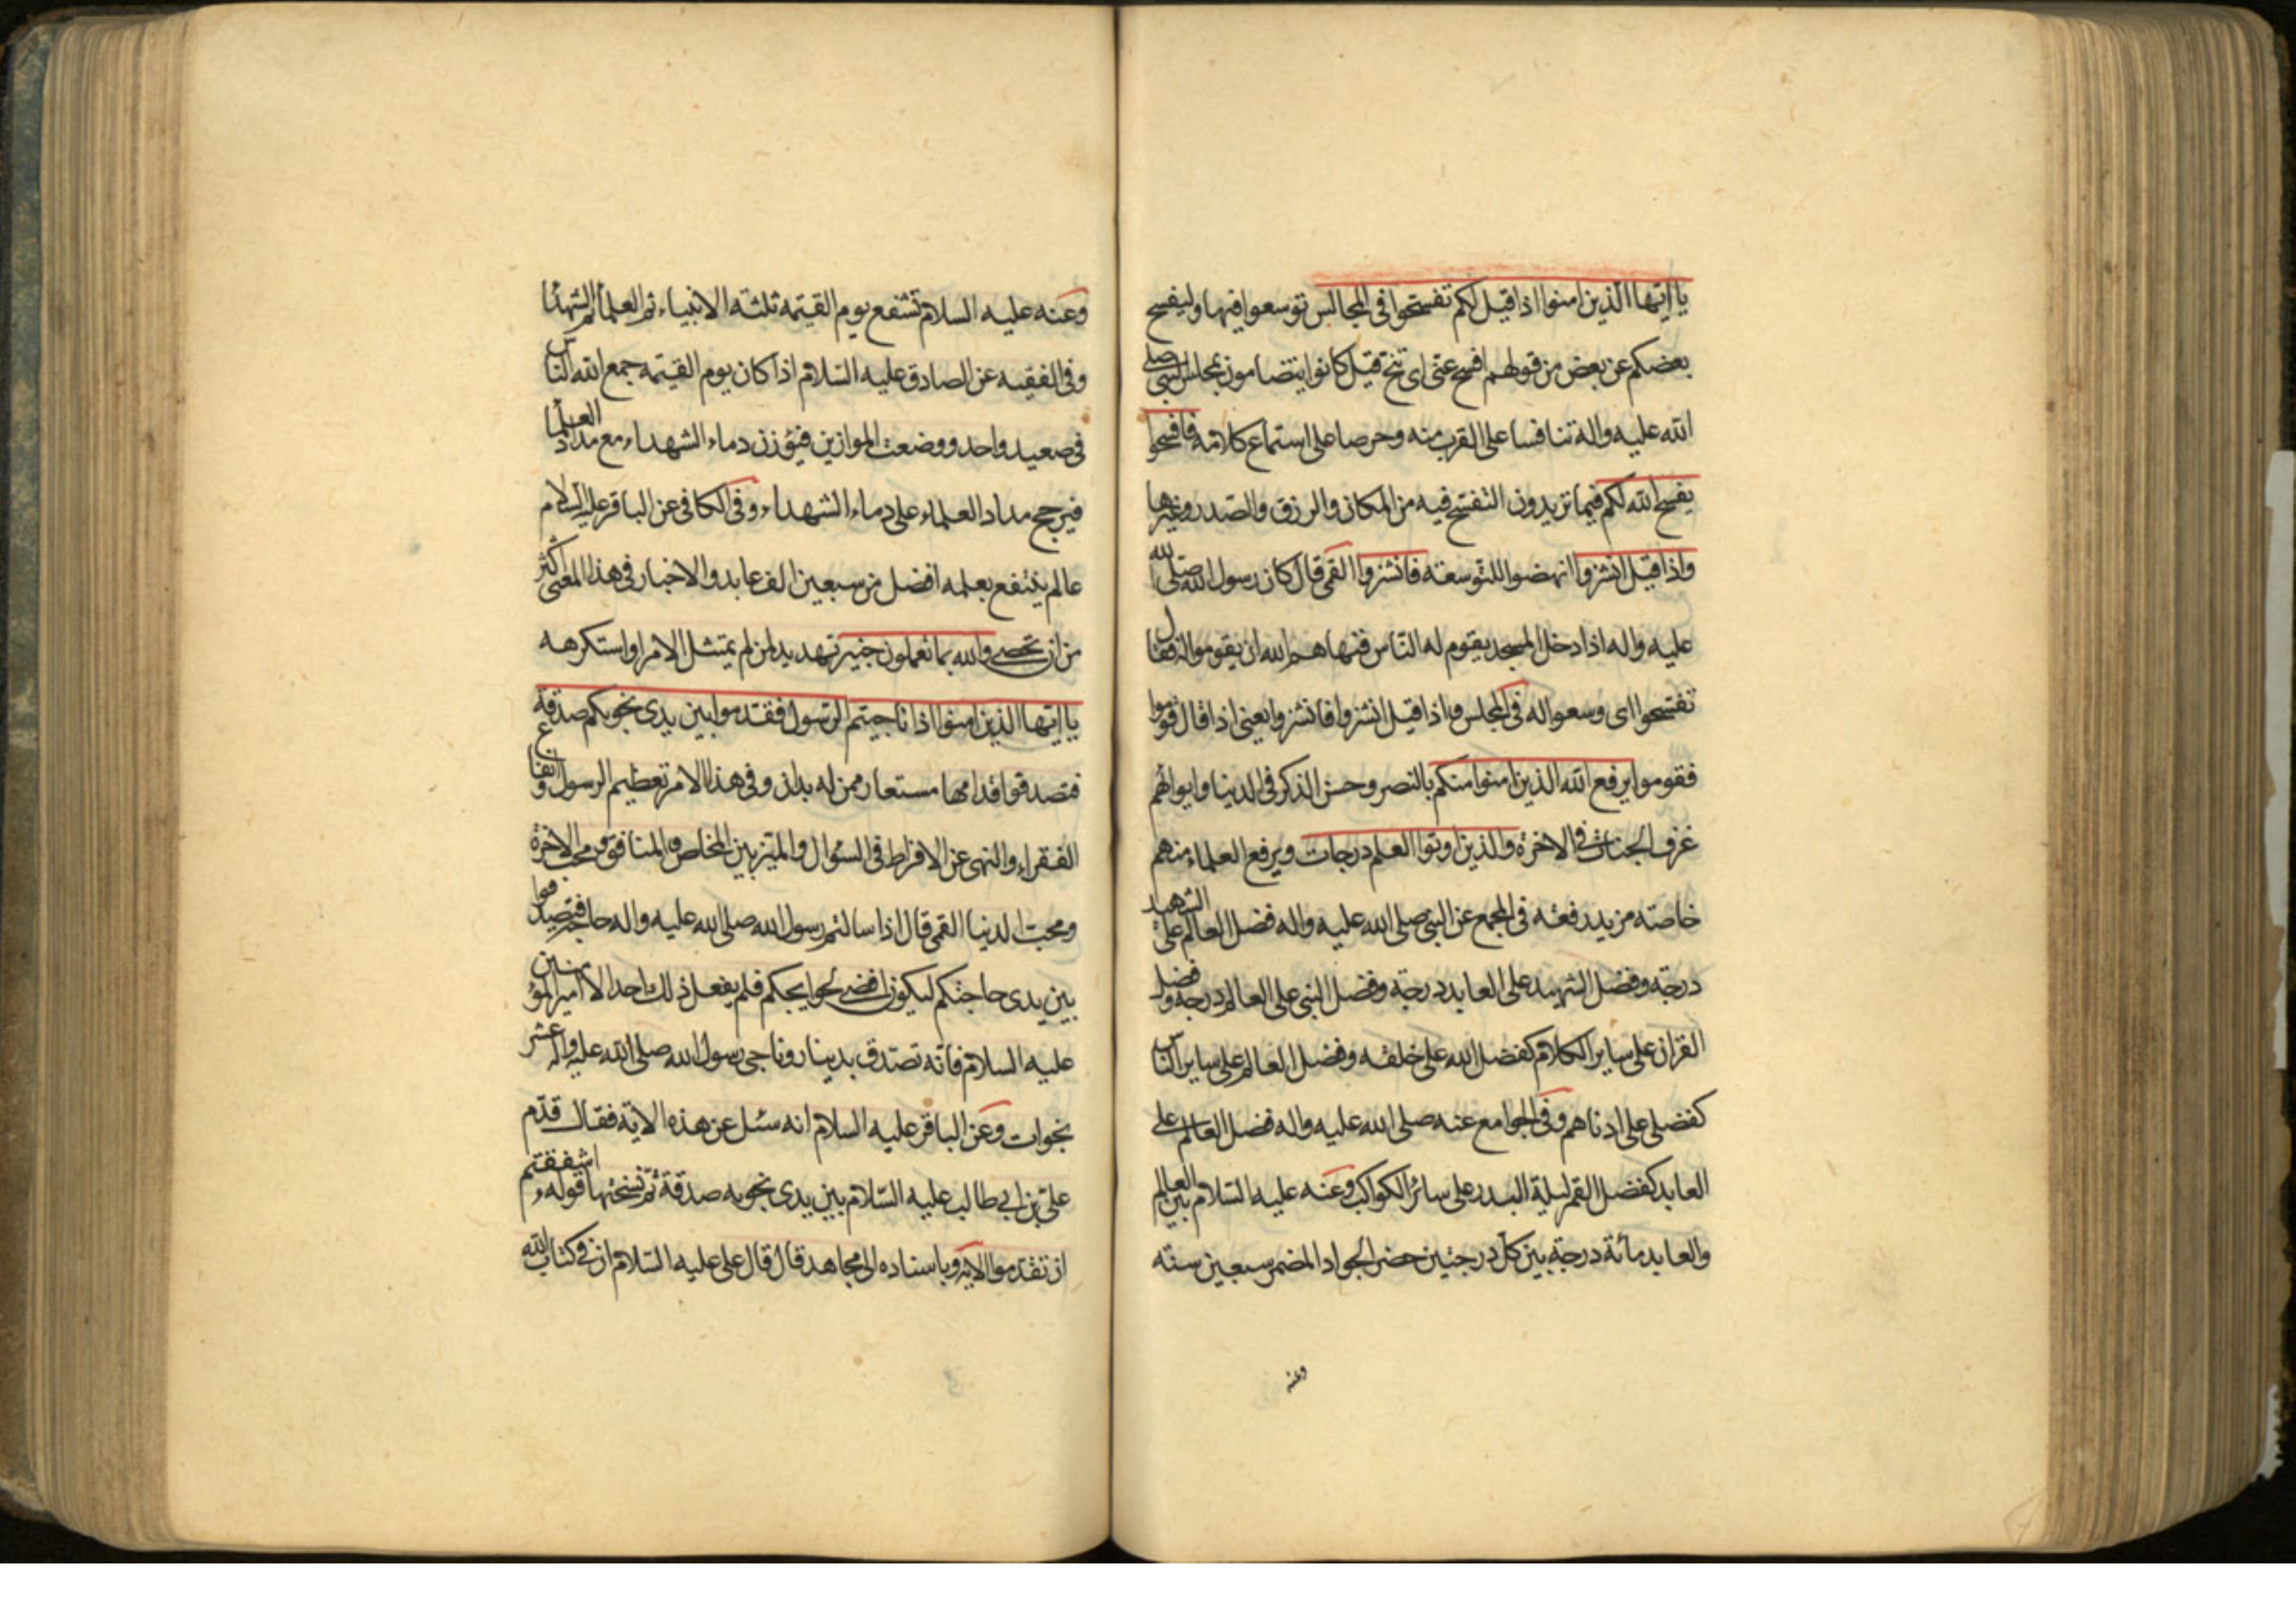 يا ايها الذين امنوا اذا قيل لكم تفسحوا فى المجالس توسعوا فيها وليفسح
بعضكم عن بعض من قولهم افسح عنى اى تنح قيل كانوا يتضامون بمجلس النبى صلى
الله عليه واله تنافسا على القرب منه وحرصا على استماع كلامه فافسحوا
يفسح الله لكم فيما تريدون التفسح فيه من المكان والرزق والصدر وغيرها
واذا قيل انشزوا انهضوا للتوسعة فانشزوا القمى قال كان رسول الله صلى الله
عليه واله اذا دخل المسجد يقوم له الناس فنهاهم الله ان يقوموا له فقال
تفسحوا اى وسعوا له فى المجلس واذا قيل انشزوا فانشزوا يعنى اذا قال قوموا
فقوموا يرفع الله الذين امنوا منكم بالنصر وحسن الذكر فى الدنيا وايوائهم
غرف الجنات فى الاخرة والذين اوتوا العلم درجات ويرفع العلماء منهم
خاصة مزيد رفعة فى المجمع عن النبى صلى الله عليه واله فضل العالم على الشهيد
درجة وفضل الشهيد على العابد درجة وفضل النبى على العالم درجة وفضل
القران على ساير الكلام كفضل الله على خلقه وفضل العالم على ساير الناس
كفضلى على ادناهم وفى الجوامع عنه صلى الله عليه واله فضل العالم على
العابد كفضل القمر ليلة البدر على سائر الكواكب وعنه عليه السلام بين العالم
والعابد مائة درجة بين كل درجتين حضر الجواد المضمر سبعين سنة
وعنه
وعنه عليه السلام تشفع يوم القيمة ثلثة الانبياء ثم العلماء ثم الشهداء
وفى الفقيه عن الصادق عليه السلام اذا كان يوم القيمة جمع الله الناس
فى صعيد واحد ووضعت الموازين فيوزن دماء الشهداء مع مداد العلماء
فيرجح مداد العلماء على دماء الشهداء وفى الكافى عن الباقر عليه السلام
عالم ينتفع بعلمه افضل من سبعين الف عابد والاخبار فى هذا المعنى اكثر
من ان تحصى والله بما تعملون خبير تهديد لمن لم يمتثل الامر او استكرهه
يا ايها الذين امنوا اذا ناجيتم الرسول فقدموا بين يدى نجويكم صدقة
فتصدقوا قدامها مستعار ممن له يدان وفى هذا الامر تعظيم الرسول وانفاع
الفقراء والنهى عن الافراط فى السؤال والميز بين المخلص والمنافق ومحب الاخرة
ومحب الدنيا القمى قال اذا سالتم رسول الله صلى الله عليه واله حاجة فتصدقوا
بين يدى حاجتكم ليكون اقضى لحوايجكم فلم يفعل ذلك احد الا امير المؤمنين
عليه السلام فانه تصدق بدينار وناجى رسول الله صلى الله عليه واله عشر
نجوات وعن الباقر عليه السلام انه سئل عن هذه الاية فقال قدم
على بن ابى طالب عليه السلام بين يدى نجويه صدقة ثم نسختها قوله ءاشفقتم
ان تقدموا الاية وباسناده الى مجاهد قال قال على عليه السلام ان فى كتاب الله